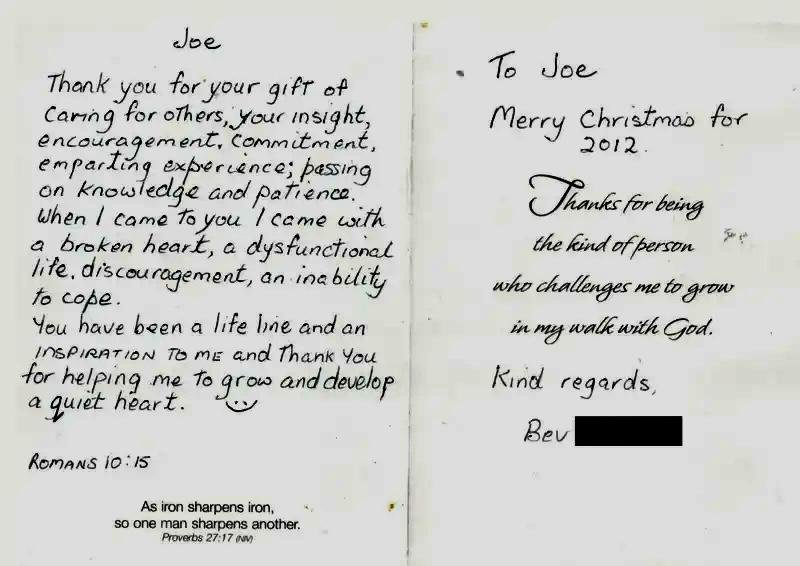 Joe
Thank you for your gift of
Caring for others, your insight,
encouragement, commitment,
emparting experience; passing
on knowledge and patience.
When I came to you I came with
a broken heart, a dysfunctional
life, discouragement, an inability
to cope.
You have been a life line and an
INSPIRATION TO ME and Thank You
for helping me to grow and develop
a quiet heart.
ROMANS 10:15
As iron sharpens iron,
so one man sharpens another.
Proverbs 27:17 (NIV)
To Joe
Merry Christmas for
2012.
Thanks for being
the kind of person
who challenges me to grow
in my walk with God.
Kind regards,
Bev